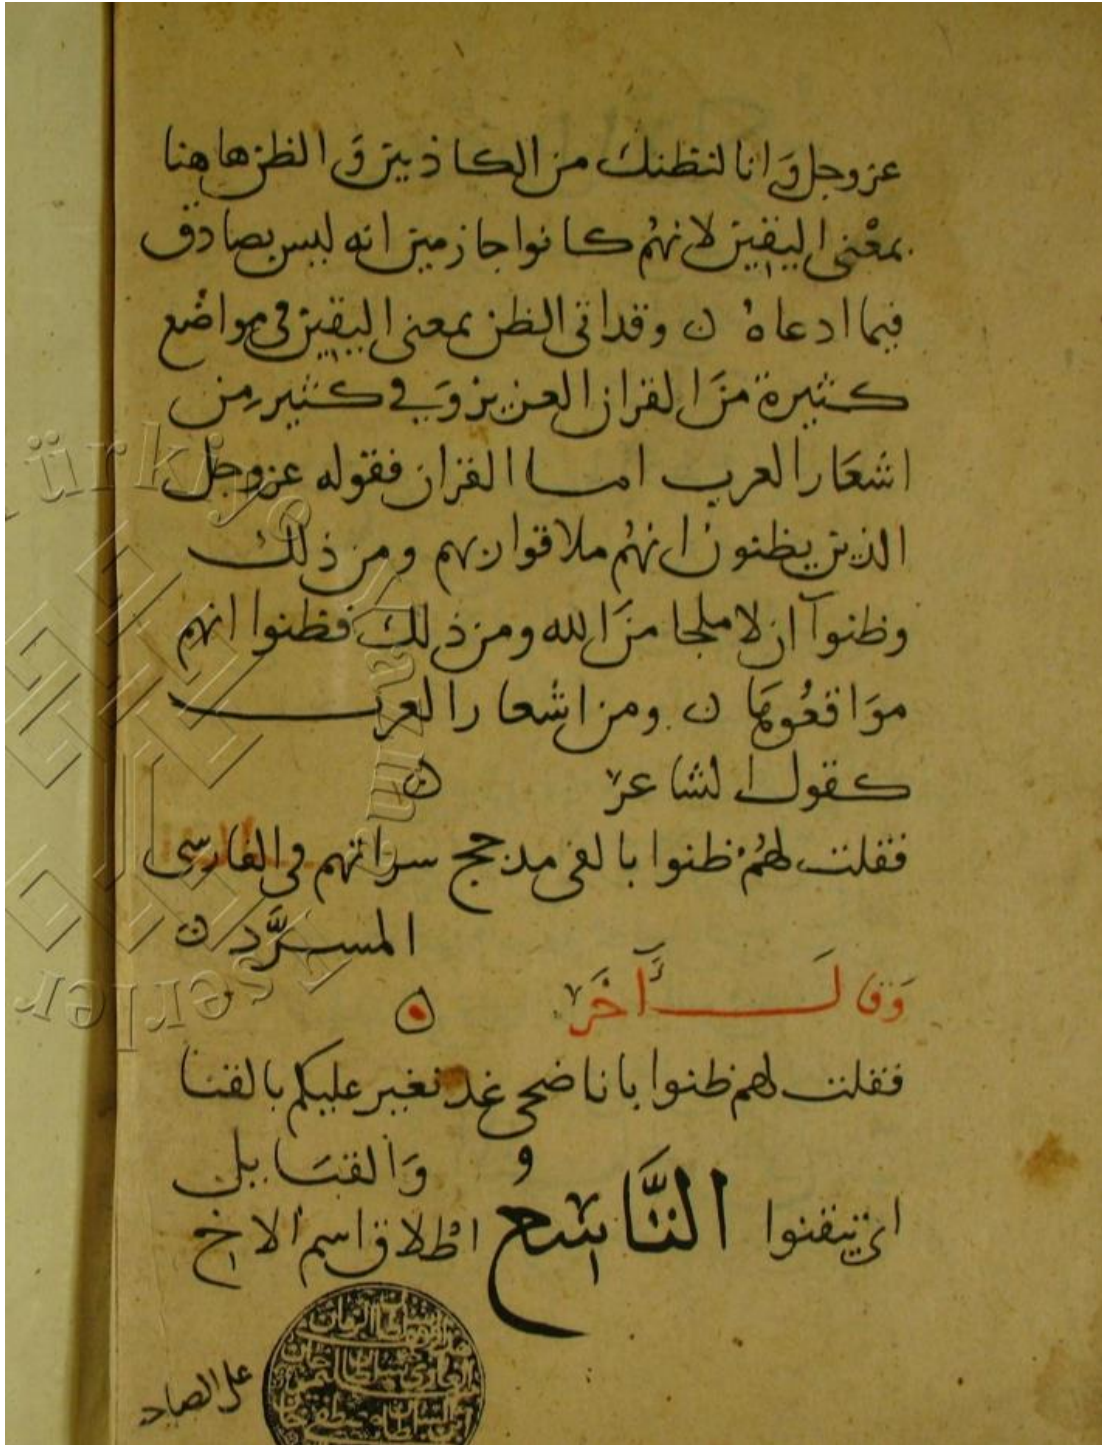 عز وجل وَانا لنظنك من الكاذبين وَ الظن هاهنا
بمعْنى اليقين لانهُم كانوا جازمين انه ليس بصادق
فيما ادعاه ن وقد اتى الظن بمعنى اليقين في مواضع
كثيرة منَ القران العزيز وَفي كثير مِن
اشعَار العرب اما القران فقوله عز وجل
الذين يظنون انهُم ملاقوا ربهم ومن ذلك
وظنوآ ان لا ملجا منَ الله ومن ذلك فظنوا انهم
موَاقعُوهَا ن ومن اشعار العرب
كقول الشاعر ن
فقلت لهُمْ ظنوا بالفى مدجج سراتهم في الفارسى
المسرَّد ن
وَقالَ آخَر ن
فقلت لهم ظنوا بانا ضحى غد نغير عليكم بالقنا
وَالقبَايل
اى تيقنوا النَّاسِعُ اطلاق اسم الاخ
على الصاد
Türkiye Yazma Eserler